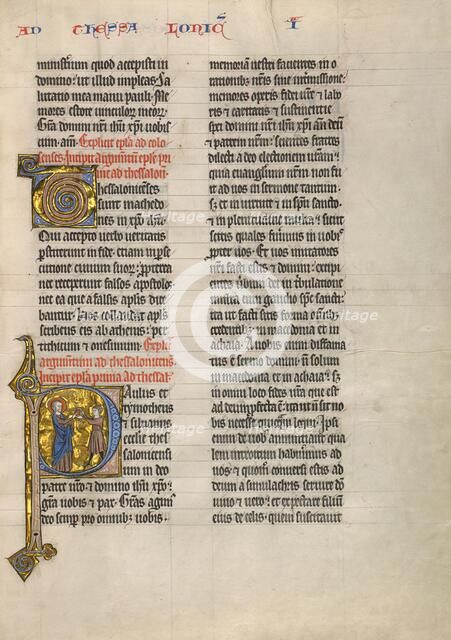 AD THESSA LONIC̄ I
ministerium quod accepisti in
domino: ut illud impleas. Sa
lutatio mea manu pauli. Me
mores estote vinculor meor.
Gr̄a domini nr̄i ihū xp̄i vobis
cum. am̄. Explicit epl̄a ad colo
senses. Incipit argumentū epl̄e pri
me ad thessaloni
Thessalonicēses
sunt machedo
nes in xp̄o ihū.
Qui accepto verbo veritatis
perstiterunt in fide: etiam in perse
cutione civium suor: preterea
nec receperunt falsos apostolos
nec ea que a falsis apl̄is dice
bantur. hos collaudat apl̄us
scribens eis ab athenis: per
tithicum & onesimum. Expl̄
argumentum ad thessalonicens̄.
Incipit epl̄a prima ad thessal̄.
Paulus et
tymotheus
& silvanus
ecclesie thes
salonicensi
um in deo
patre nr̄o & domino ihū xp̄o:
gr̄a vobis & pax. Gr̄as agim
deo semper pro omnibus vobis:
memoriam vestri facientes in o
rationibus nr̄is sine intermissione:
memores operis fidei vr̄e & labo
ris & caritatis & sustinentie
spei domini nr̄i ihū xp̄i ante deū
& patrem nr̄m: scientes fratres
dilecti a deo electionem vr̄am:
quia euangelium nr̄m non fuit
ad vos in sermone tantum:
sed et in virtute & in spū sancto:
& in plenitudine multa: sicut
scitis quales fuimus in vobis
propter vos. Et vos imitatores
nr̄i facti estis & domini: excipi
entes verbū in tribulatione
multa cum gaudio spc̄ sancti:
ita ut facti sitis forma omnib;
credentib; in macedonia et in
achaia. A vobis enim diffama
tus ē sermo domini: n̄ solum
in macedonia et in achaia: sed &
in omni loco fides vr̄a que est
ad deum profecta ē: ita ut n̄ sit no
bis necesse quicquam loqui. Ipsi
enim de vobis annuntiant qua
lem introitum habuimus ad
vos: & quom̄ conversi estis ad
deum a simulachris servire deo
vivo & vero: et expectare filium
eius de celis: quem suscitavit
heritage
images